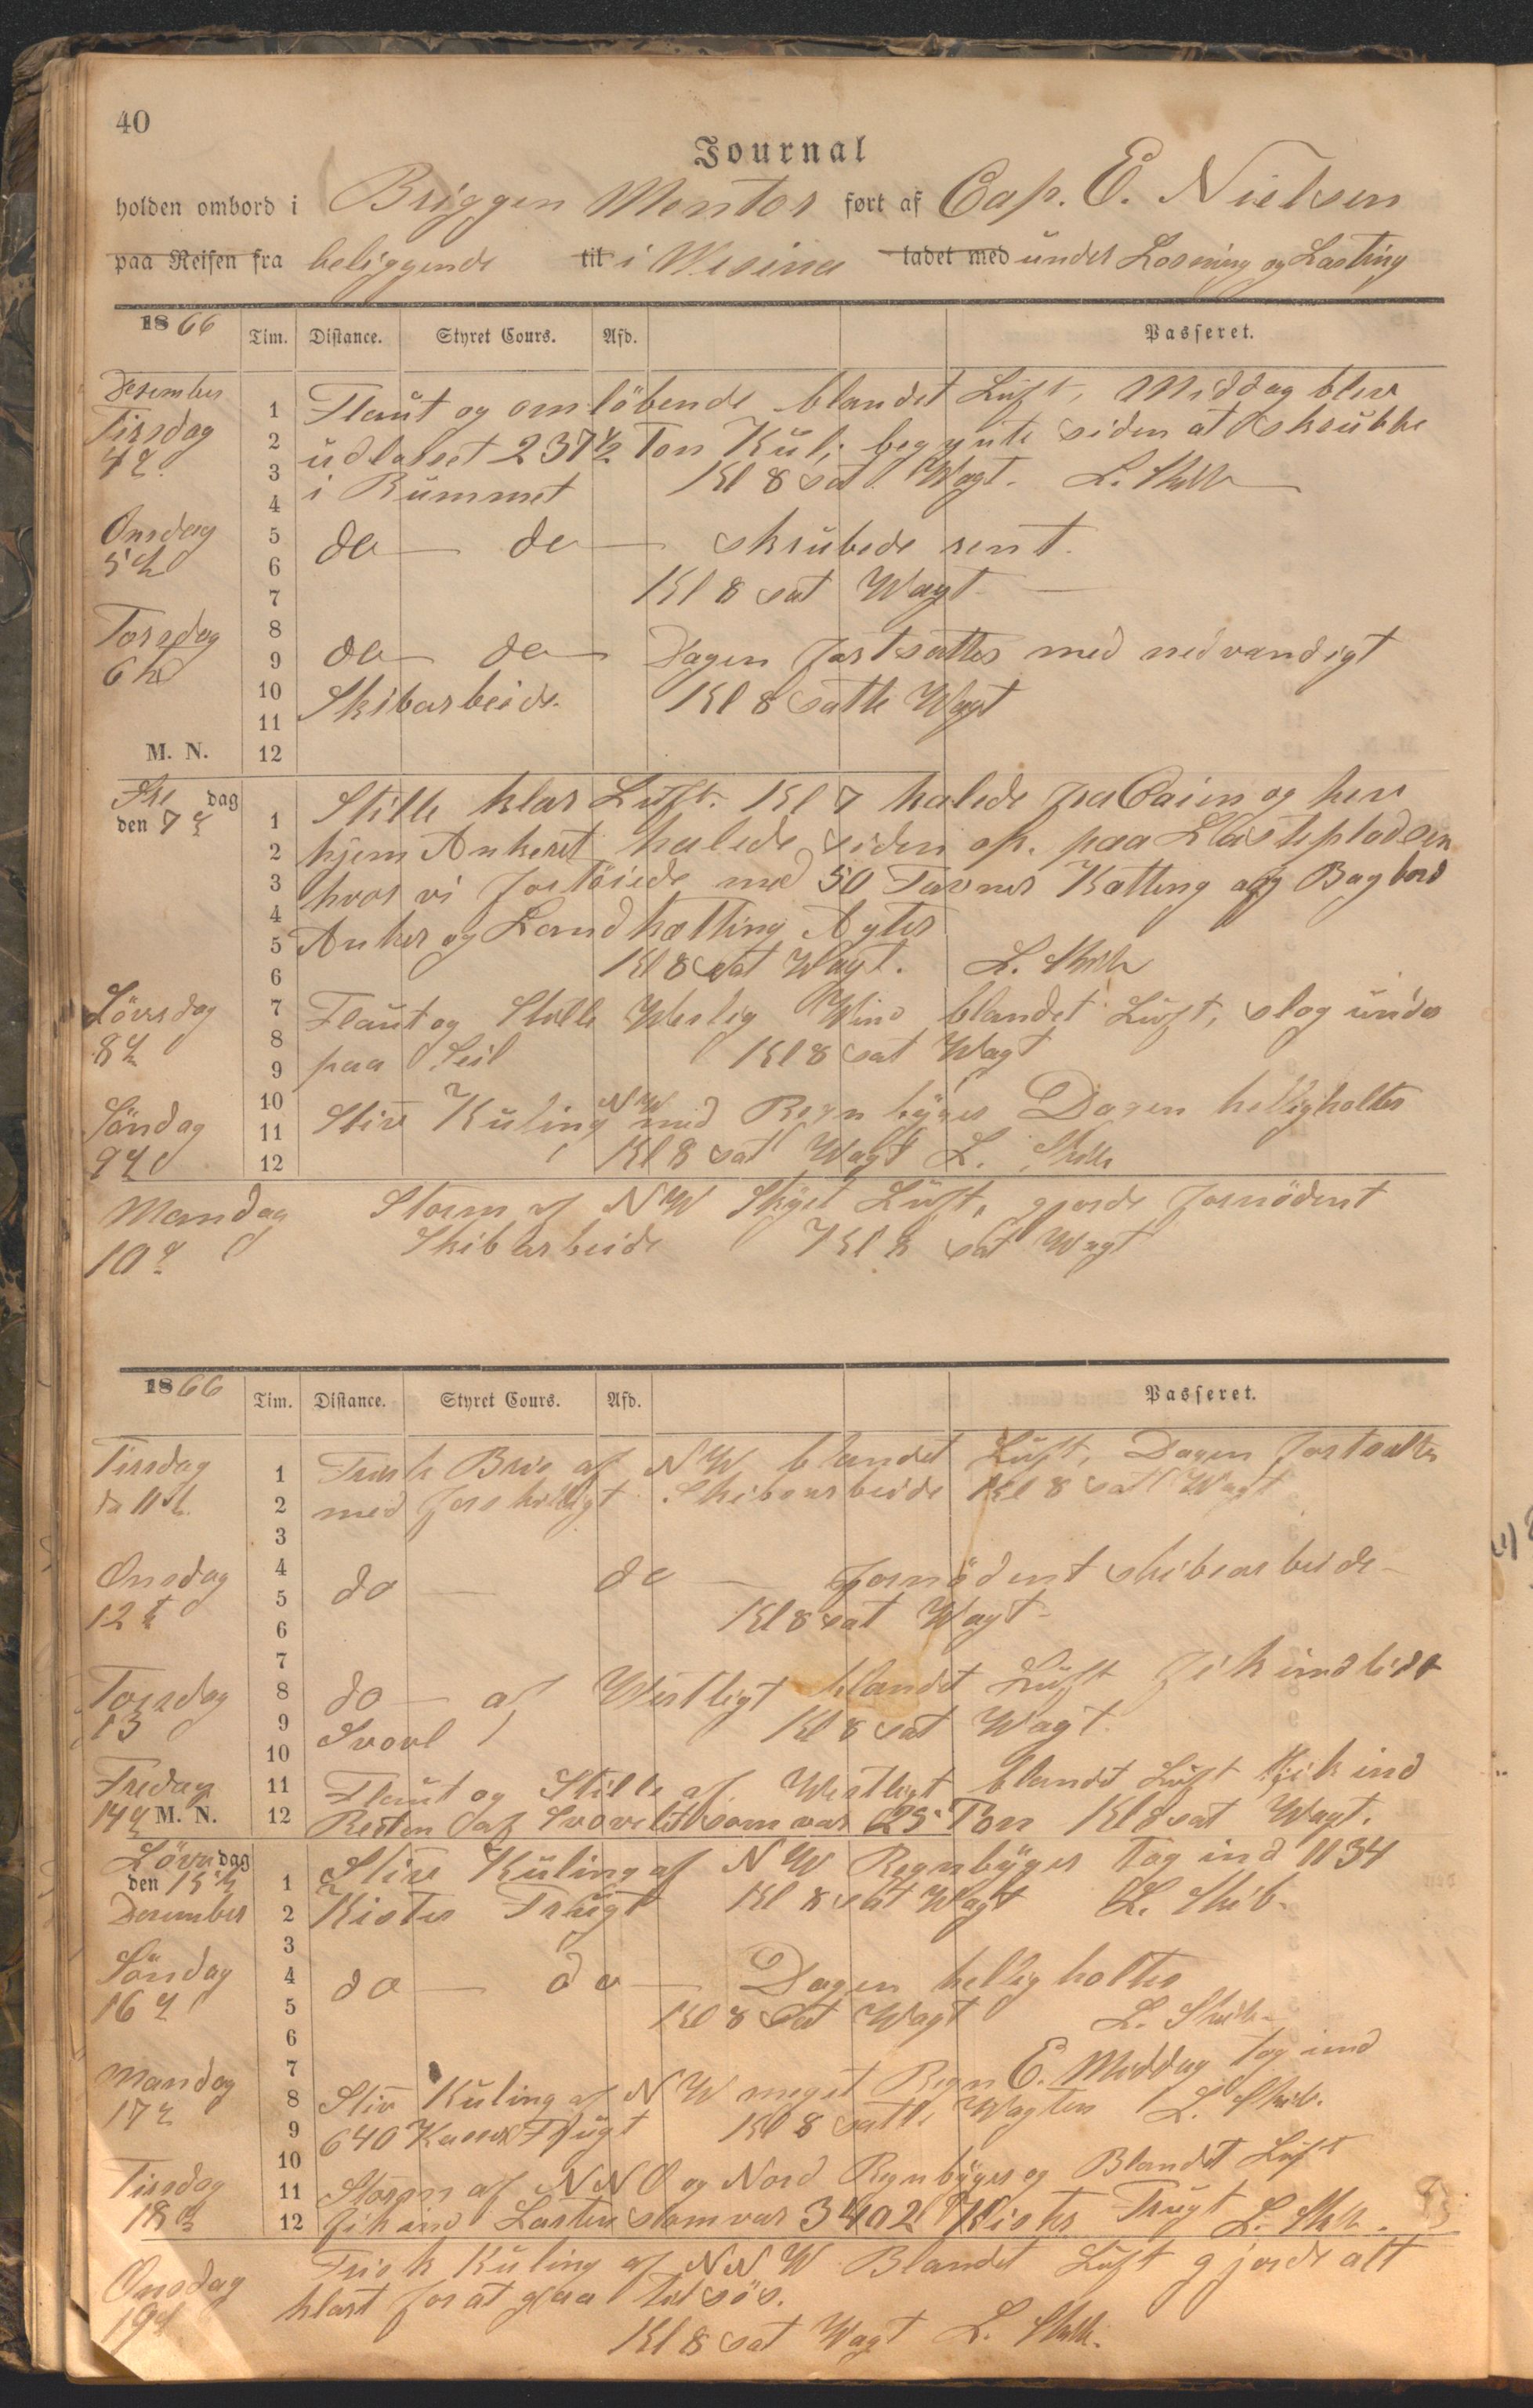 40
Journal
holden ombord i Briggen Mentor ført af Cap. E. Nielsen
paa Reisen fra beliggende til i Mesina ladet med under Losning og Lasting
1866 Tim. Distance. Styret Cours. Afd. Passeret.
Desember
Tirsdag 4de
1 2 3 4 5 6 7 8 9 10 11 12
Flaut og omløbende blandet Luft, Middag blev
udlosset 237½ Ton Kul, begynte siden at skrubbe
i Rummet Kl 8 sat Wagt.
Onsdag 5te
do — do — skrubede rent.
Kl 8 sat Wagt —
Torsdag 6te
do — do — Dagen fortsattes med nødvandigt
Skibarbeide. Kl 8 satte Wagt
M. N.
Fredag
den 7de
1 2 3 4 5 6 7 8 9 10 11 12
Stille klar Luft. Kl 7 halede fra Caien og hev
hjem Ankeret halede siden op. paa Lasteplodsen
hvor vi fortøiede med 50 Favner Kætting og Bagbord
Anker og Landkætting Agter
Kl 8 sat Wagt.
Lövrsdag 8de
Flaut og Stille Weslig Wind blandet Luft, slog under
paa Seil Kl 8 sat Wagt
Söndag 9de
Stiv Kuling NW med Regnbyger Dagen helligholtes
Kl 8 sat Wagt
Mandag 10de
Storm af NW Skyet Luft, gjorde fornödent
Skibarbeide Kl 8 sat Wagt
1866 Tim. Distance. Styret Cours. Afd. Passeret.
Tirsdag
11te
1 2 3 4 5 6 7 8 9 10 11 12
Frisk Bris af NW blandet Luft, Dagen fortsattes
med forskilligt Skibsarbeide Kl 8 sat Wagt
Onsdag 12te
do — do — fornødent skibsarbeide —
Kl 8 sat Wagt —
Torsdag 13
do — af Westligt blandet Luft fik indlidt
Svovl Kl 8 sat Wagt.
Fredag 14de M. N.
Flaut og Stille af Westligt blandt Luft fik ind
Resten af Svovelet som var 25 Ton Kl 8 sat Wagt.
Lövrdag
den 15de
Desember
1 2 3 4 5 6 7 8 9 10 11 12
Stiv Kuling af NW Regnbyger Tog ind 1134
Kister Frugt Kl 8 sat Wagt
Söndag 16de
do — do — Dagen helligholtes
Kl 8 sat Wagt
Mandag 17de
Stiv Kuling af NW meget Regn E. Middag Tog ind
640 Kasser Frugt Kl 8 satte Wagten
Tirsdag 18de
Storm af NNO og Nord Regnbyger og Blandet Luft
fik ind Lasten som var 3402 Kister Frugt
Onsdag 19de
Frisk Kuling af NNW Blandet Luft gjorde alt
klart for at gaa til søs.
Kl 8 sat Wagt